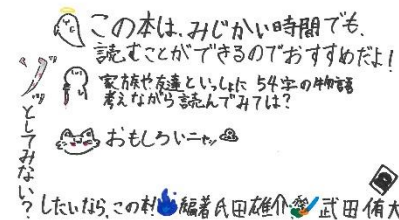 この本は、みじかい時間でも、
読むことができるのでおすすめだよ!
家族や友達といっしょに 54字の物語
考えながら読んでみては?
おもしろいニャッ
ゾッとしてみない?
したいなら、この本 編著 氏田雄介 武田侑大